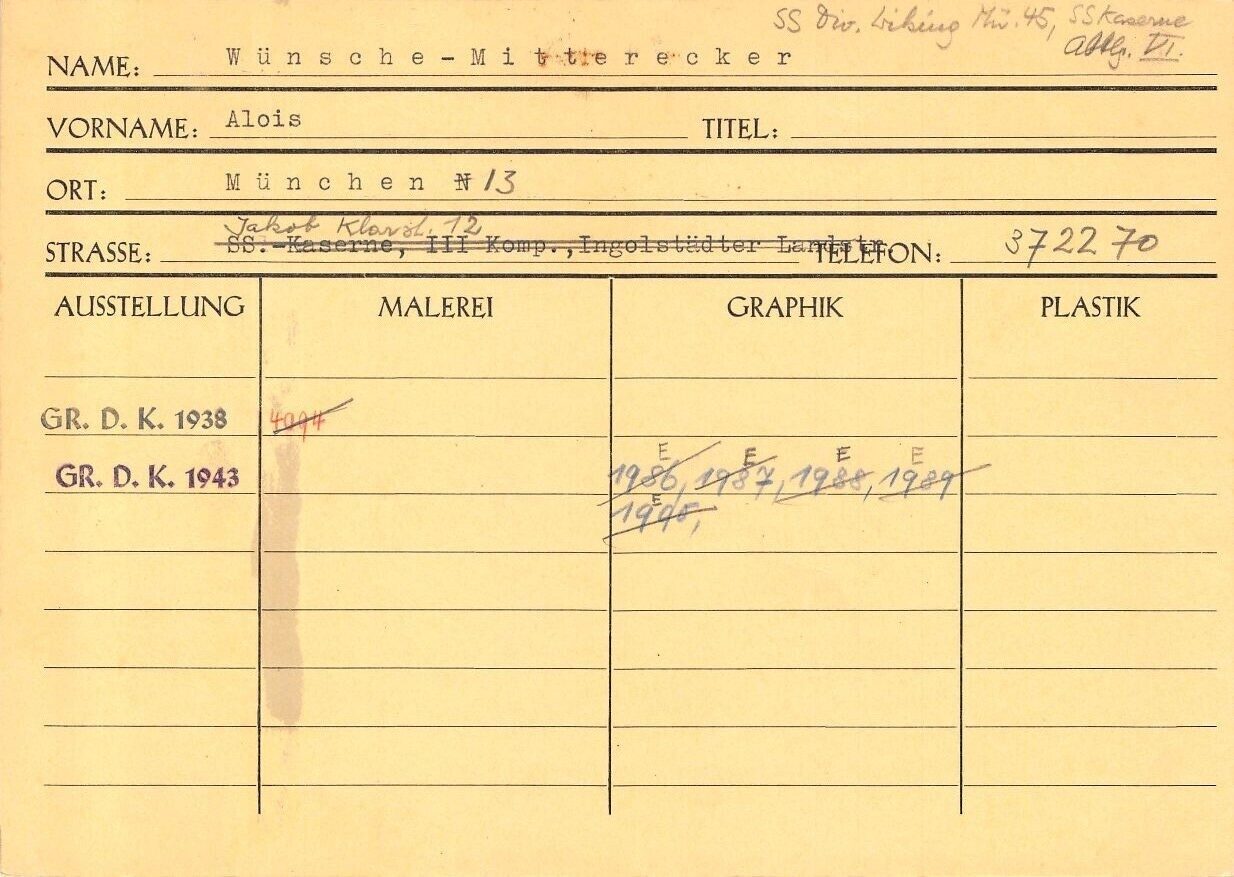 SS Div. Wiking Mü. 45, SS Kaserne
Abtlg. VI.
NAME: Wünsche-Mitterecker
VORNAME: Alois TITEL:
ORT: München N 13
Jakob Klarst. 12
STRASSE: SS.-Kaserne, III Komp., Ingolstädter Landstr. TELEFON: 372270
AUSSTELLUNG MALEREI GRAPHIK PLASTIK
GR. D. K. 1938 4094
E E E E
GR. D. K. 1943 1986, 1987, 1988, 1989
E
1995,